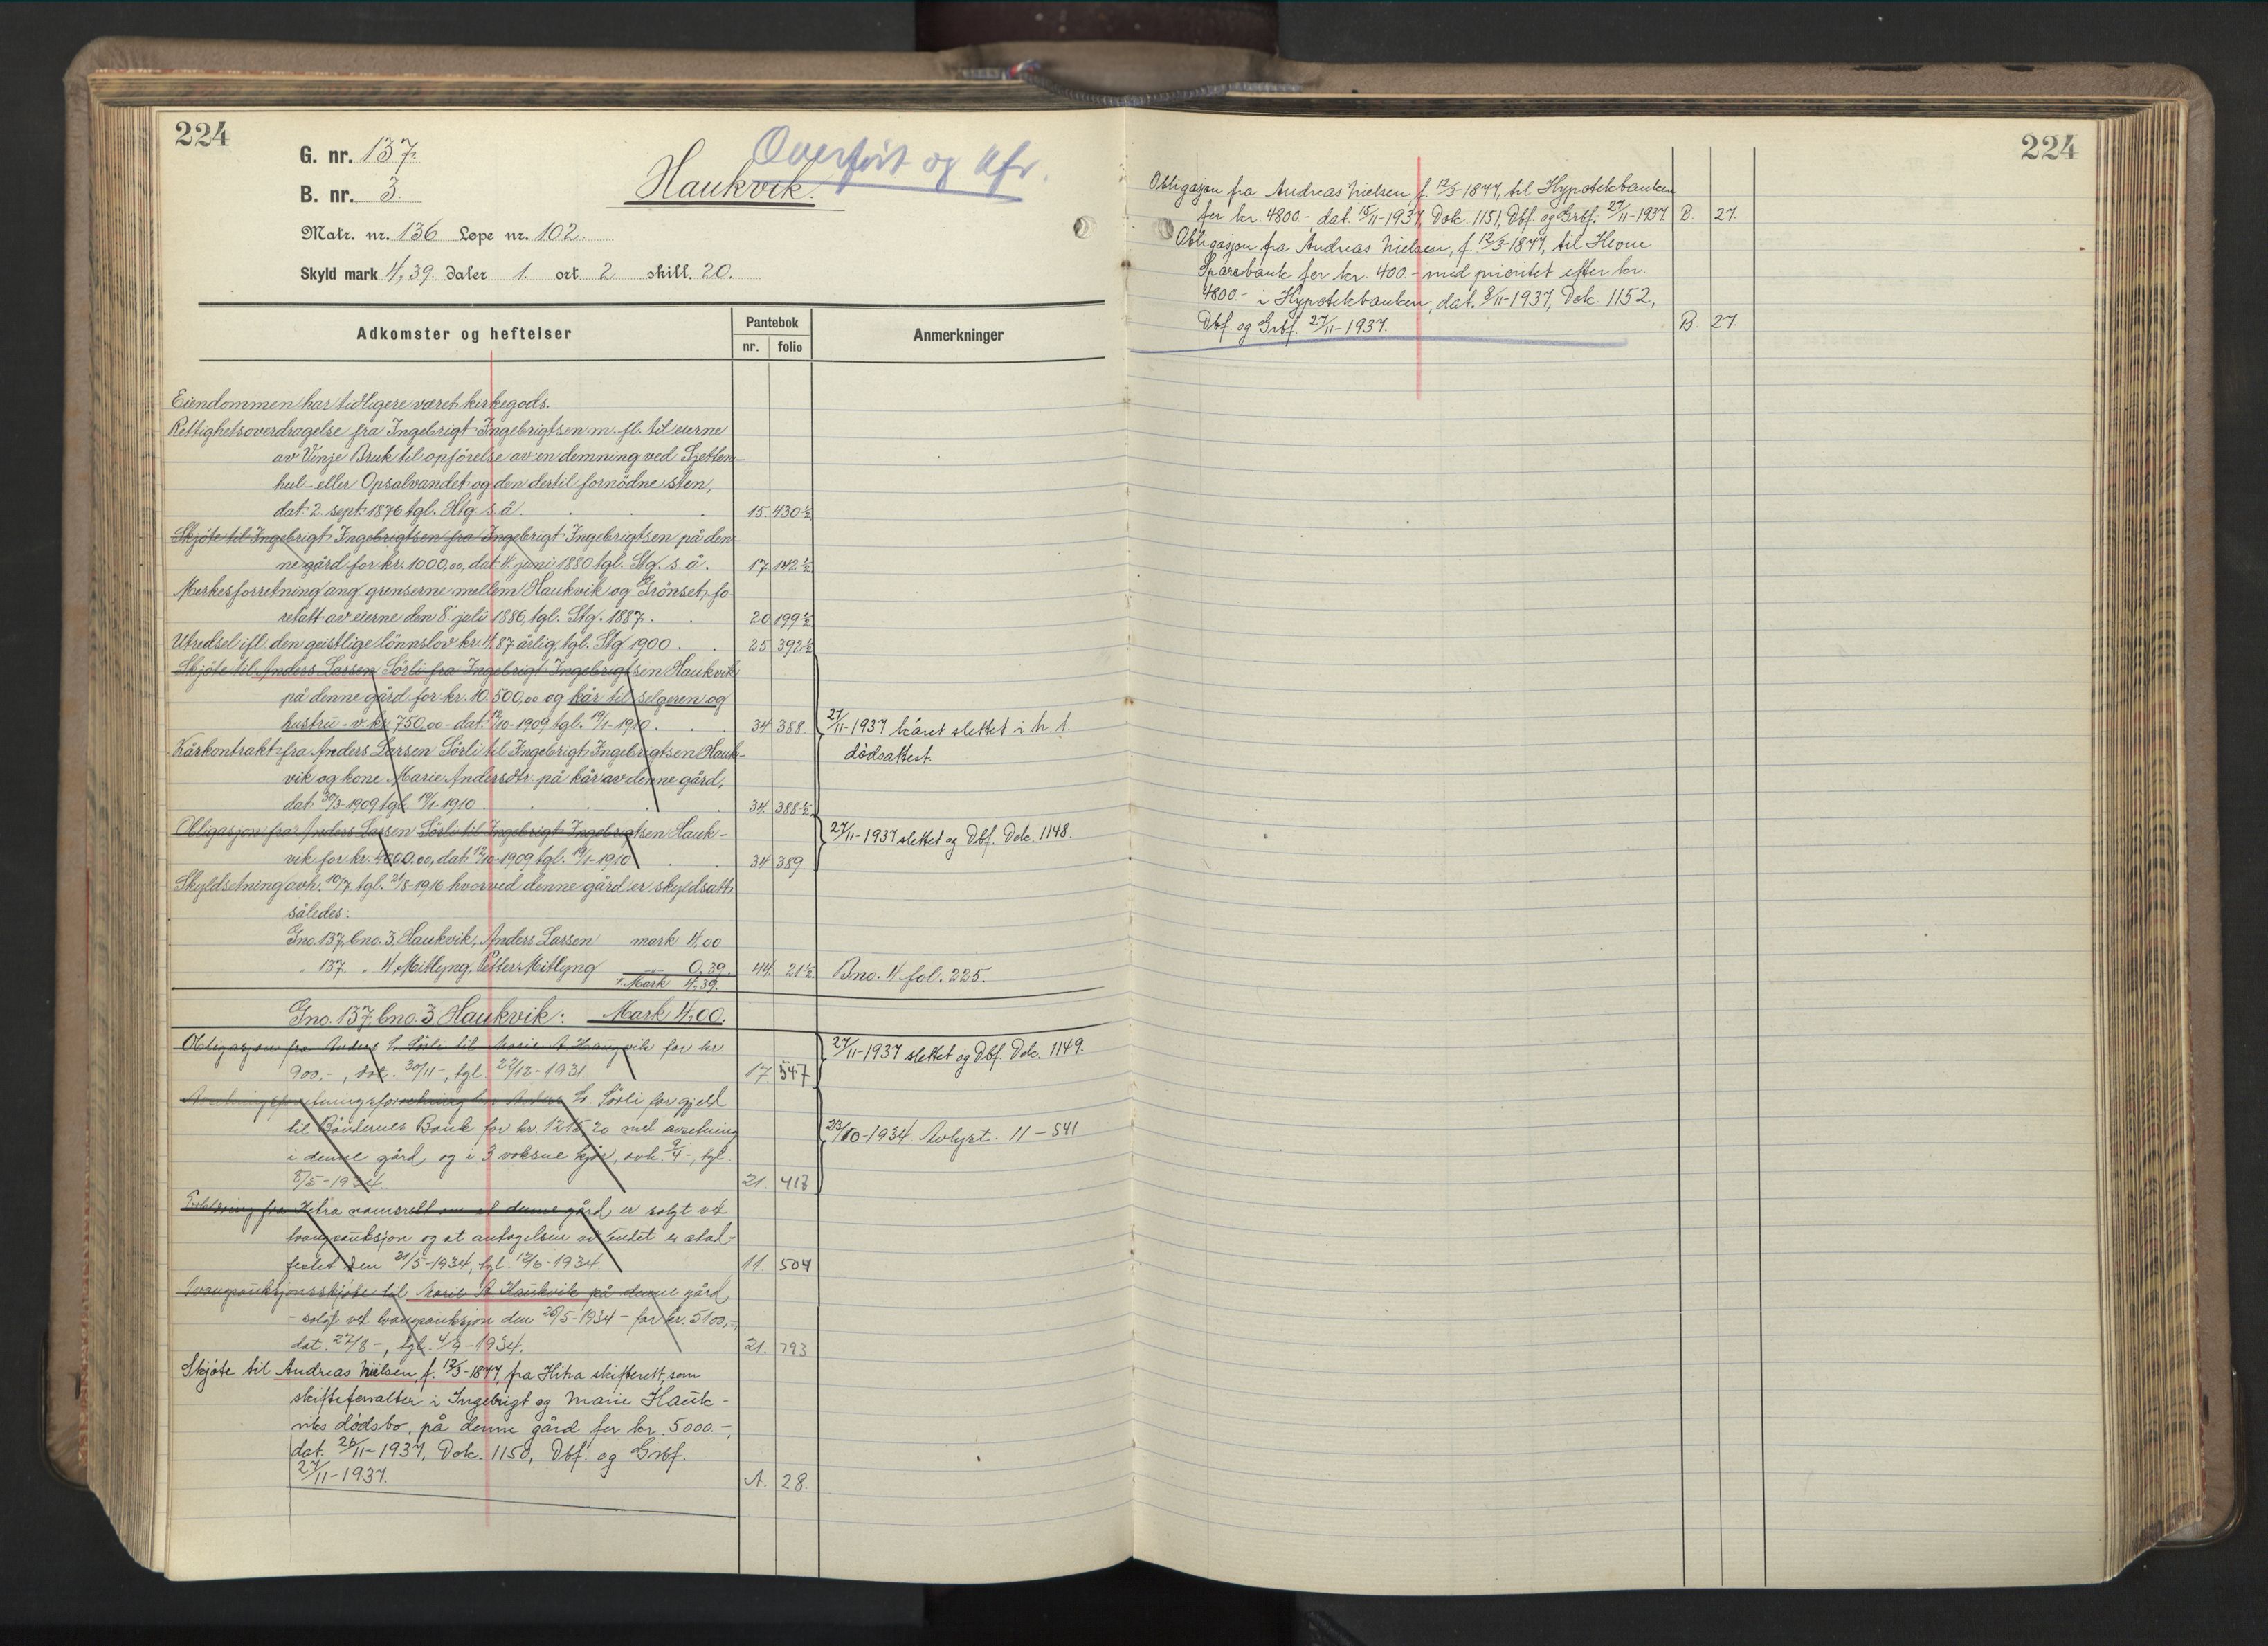 224
G. nr. 137.
Overført og kfr.
B. nr. 3.
Haukvik.
Matr. nr. 136 Løpe nr. 102.
Skyld mark 4,39. daler 1. ort 2 skill. 20.
Adkomster og heftelser
Pantebok
nr. folio
Anmerkninger
Eiendommen har tidligere været kirkegods.
Rettighetsoverdragelse fra Ingebrigt Ingebrigtsen m. fl. til eierne
av Vinje Bruk til opførelse av en demning ved
hul- eller Opsalvandet og den dertil fornödne sten,
dat. 2. sept. 1876 tgl. Htg. s. å. 15. 430½
Skjöte til Ingebrigt Ingebrigtsen fra Ingebrigt Ingebrigtsen på den-
ne gård for kr. 1000,00, dat. 4. juni 1880 tgl. Stg. s. å. 17 142½
Merkesforretning ang. grenserne mellem Haukvik og Grönset, fo-
retatt av eierne den 8. juli 1886, tgl. Stg. 1887. 20 199½
Utredsel ifl. den geistlige lönnslov kr. 4,87 årlig, tgl. Stg 1900. 25 392½
Skjöte til Anders Larsen Sörli fra Ingebrigt Ingebrigtsen Haukvik
på denne gård for kr. 10.500,00 og kår til selgeren og
hustru - v. kr. 750,00 - dat. 12/10-1909 tgl. 19/1-1910. 34 388
27/11-1937 kåret slettet i h. t.
dödsattest.
Kårkontrakt fra Anders Larsen Sörli til Ingebrigt Ingebrigtsen Hauk-
vik og kone Marie Andersdtr. på kår av denne gård,
dat. 30/3-1909 tgl. 19/1-1910. 34. 388½
Obligasjon fra Anders Larsen Sörli til Ingebrigt Ingebrigtsen Hauk-
vik for kr. 4000,00, dat. 12/10-1909 tgl. 19/1-1910 34 389.
27/11-1937 slettet og Dbf. Dok. 1148.
Skyldsetning avh. 10/7 tgl. 21/8-1916 hvorved denne gård er skyldsatt
således:
Gno. 137, bno. 3, Haukvik, Anders Larsen mark 4,00
" 137. " 4 Mitlyng, Petter Mitlyng 0,39. 44. 21½. Bno. 4 fol. 225.
Mark 4,39.
Gno. 137, bno. 3 Haukvik: Mark 4,00.
Obligasjon fra Anders L. Sörli til Marie A. Haugvik for kr.
900.-, dat. 30/11-, tgl. 22/12-1931 17. 547
27/11-1937 slettet og Dbf. Dok. 1149.
L. Sörli for gjeld
til Böndernes Bank for kr. 1215,20 med avsetning
i denne gård, og i 3 voksne kjör, avh. 9/4-, tgl.
8/5-1934. 21. 418
23/10-1934. Avlyst. 11-541
Erklæring fra Hitra namsrett om at denne gård er solgt ved
tvangsauksjon og at antagelsen av budet er stad-
festet den 31/5-1934, tgl. 12/6-1934. 11. 504
Tvangsauksjonsskjöte til Marie A. Haukvik på denne gård
- solgt ved tvangsauksjon den 26/5-1934 - for kr. 5100,-,
dat. 27/8-, tgl. 4/9-1934. 21. 793
Skjöte til Andreas Nielsen, f. 12/3-1877, fra Hitra skifterett, som
skifteforvalter i Ingebrigt og Marie Hauk-
viks dödsbo, på denne gård for kr. 5000.-,
dat. 26/11-1937, Dok. 1150, Dbf. og Grbf.
27/11-1937. A. 28.
224
Obligasjon fra Andreas Nielsen, f. 12/3-1877, til Hypotekbanken
for kr. 4800.-, dat. 15/11-1937, Dok. 1151, Dbf. og Grbf. 27/11-1937 B. 27.
Obligasjon fra Andreas Nielsen, f. 12/3-1877, til Hevne
Sparebank for kr. 400.- med prioritet efter kr.
4800.- i Hypotekbanken, dat. 8/11-1937, Dok. 1152,
Dbf. og Grbf. 27/11-1937. B. 27.